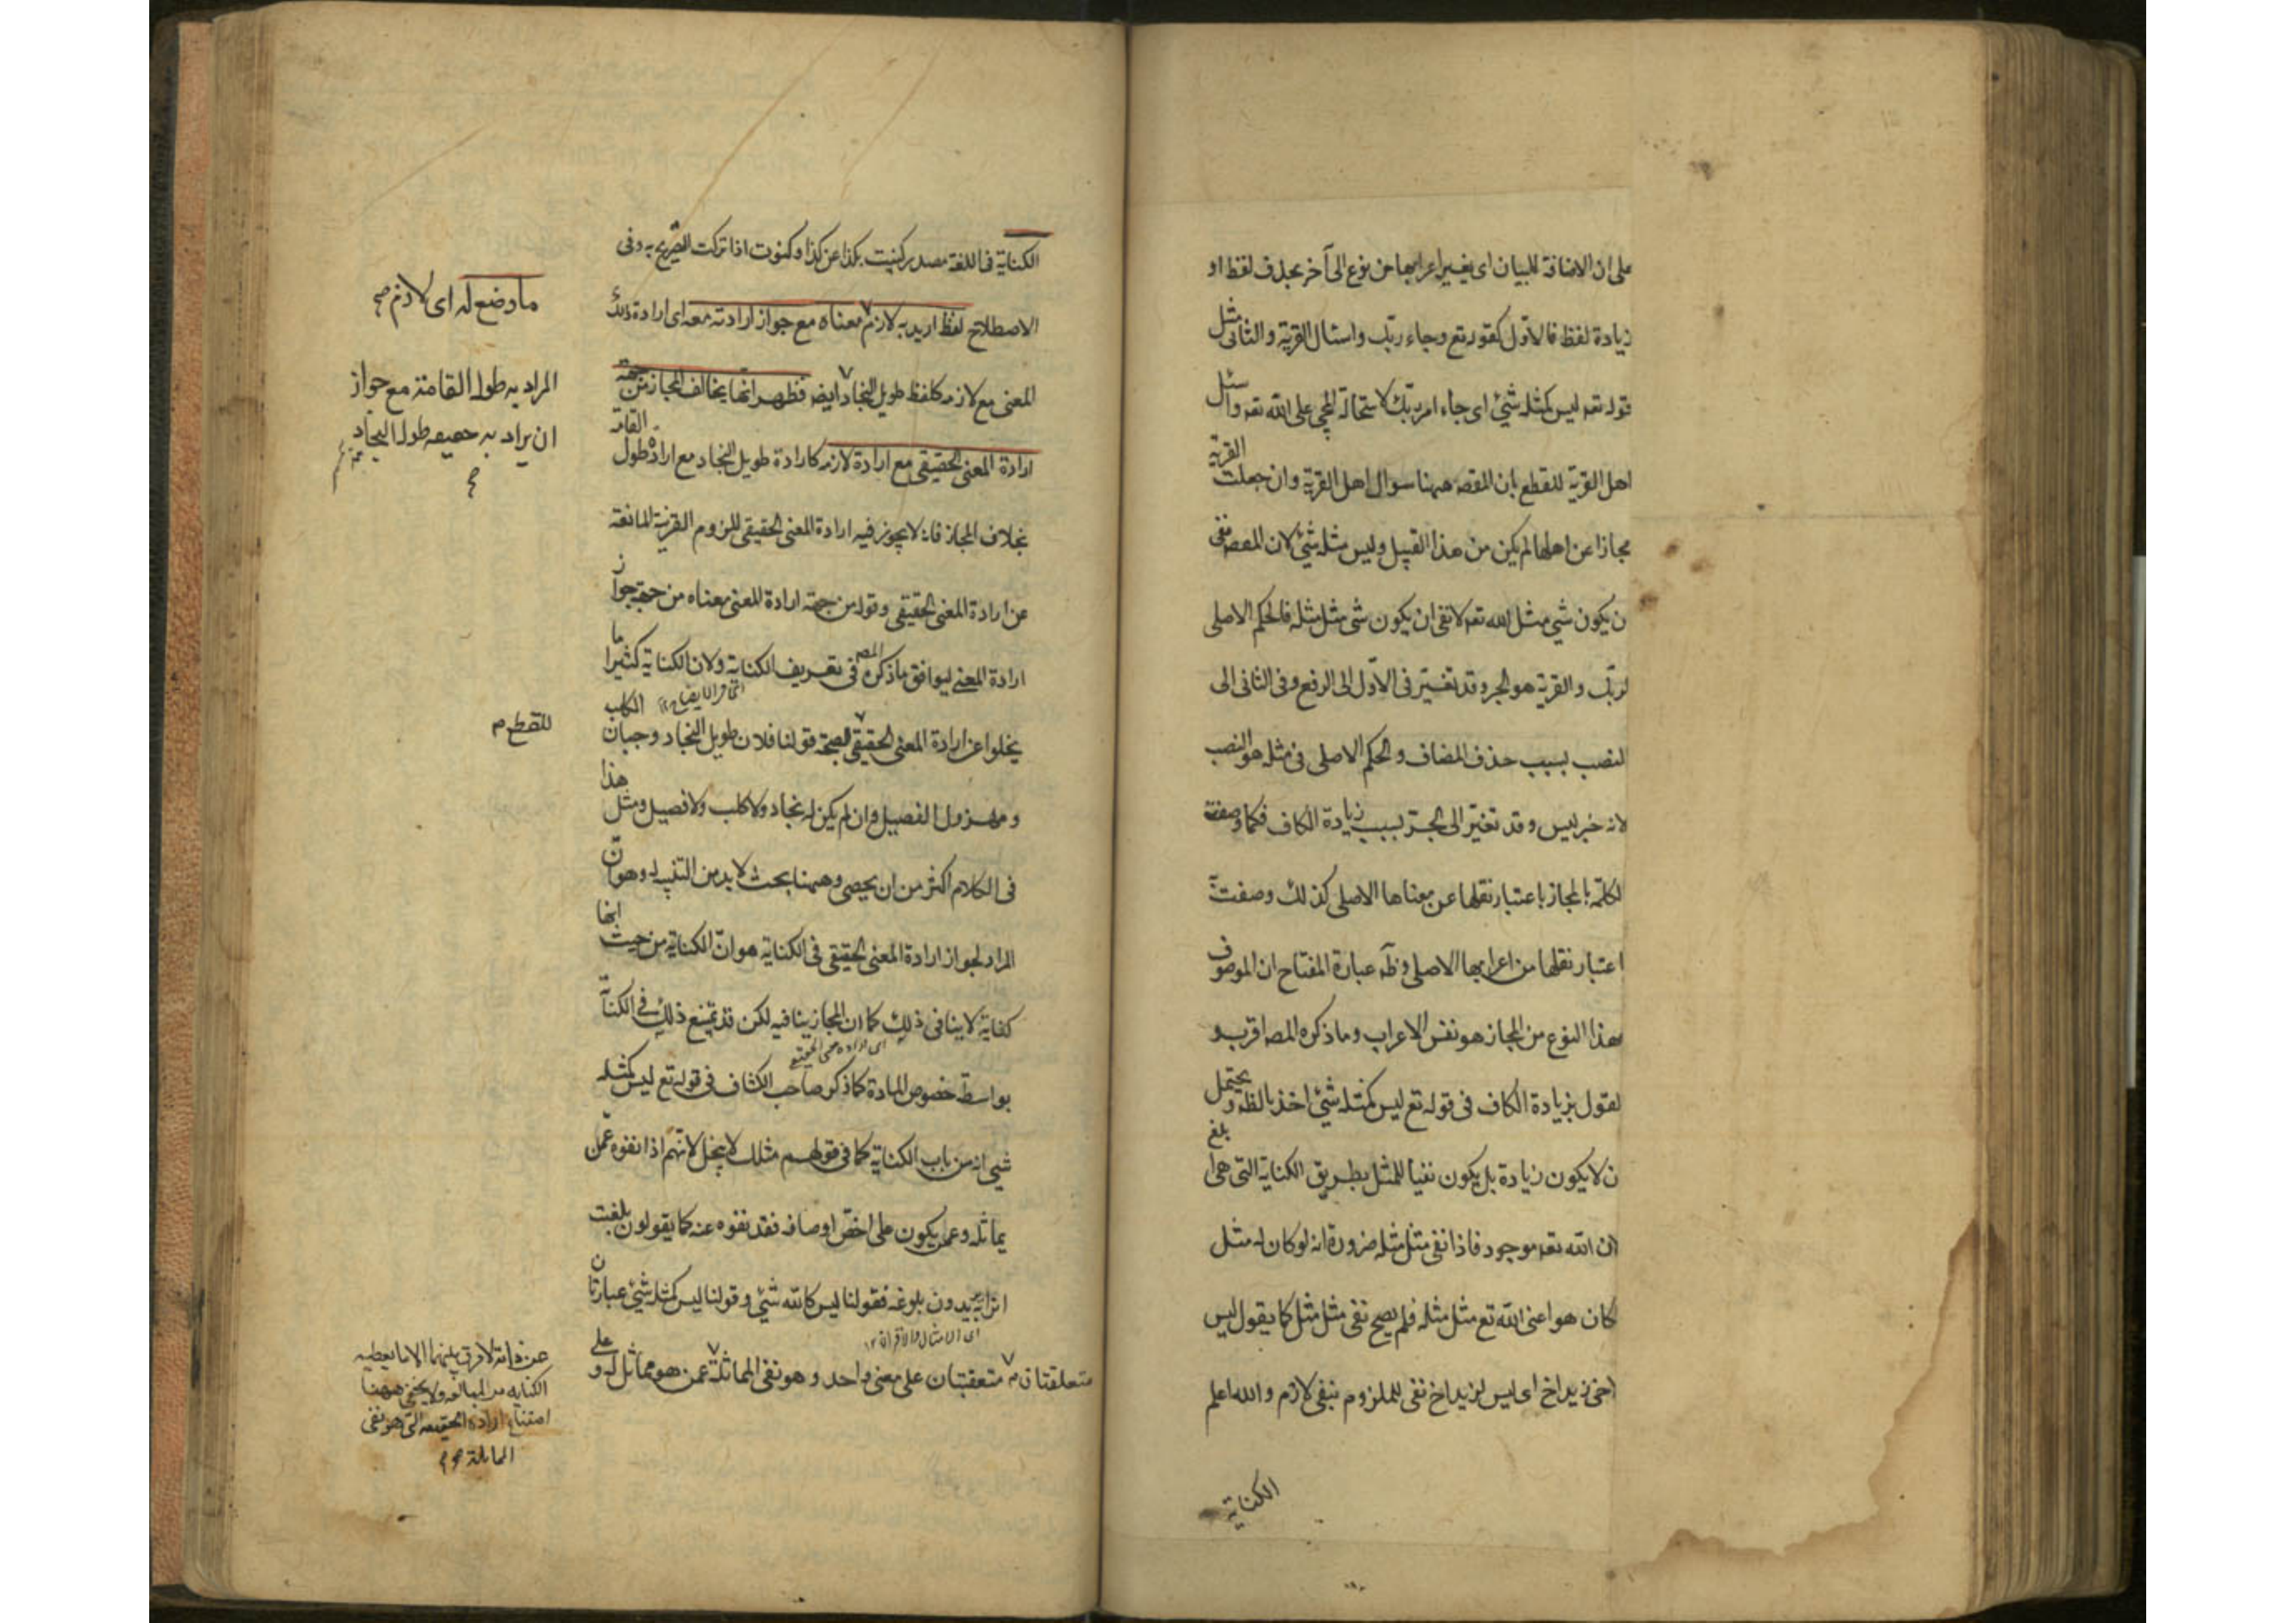 على ان الاضافة للبيان اى يغير اعرابها من نوع الى آخر بحذف لفظ او
زيادة لفظ فالاول كقوله تع وجاء ربك واسئال القرية والثانى مثل
قوله تعه ليس كمثله شئ اى جاء امر ربك لاستحالة المجئ على الله تعه واسئل
اهل القرية للقطع بان المقصه ههنا سوال اهل القرية وان جعلت القرية
مجازا عن اهلها لم يكن من هذا القبيل وليس مثله شئ لان المقصه نفى
ن يكون شئ مثل الله تعه لا نفى ان يكون شئ مثل مثله فالحكم الاصلى
لربك والقرية هو الجر وقد تغير فى الاول الى الرفع وفى الثانى الى
لنصب بسبب حذف المضاف والحكم الاصلى فى مثله هو النصب
لانه خبر ليس وقد تغير الى الجر بسبب زيادة الكاف فكما وصفت
لكلمة بالمجاز باعتبار نقلها عن معناها الاصلى كذلك وصفت به
اعتبار نقلها من اعرابها الاصلى وظه عبارة المفتاح ان الموصوف
بهذا النوع من المجاز هو نفس الاعراب وما ذكره المصه اقرب و
لقول بزيادة الكاف فى قوله تع ليس كمثله شئ اخذ بالظه ويحتمل
ن لا يكون زيادة بل يكون نفيا للمثل بطريق الكناية التى هى ابلغ
ان الله تعه موجود فاذا نفى مثل مثله ضرورة انه لو كان له مثل
لكان هو اعنى الله تع مثل مثله فلم يصح نفى مثل مثل كما يقول ليس
اخى زيد اخ اى ليس لزيد اخ نفى للملزوم بنفى لازم والله اعلم
الكناية
الكناية فى اللغة مصدر كنيت بكذا عن كذا وكنوت اذا تركت التصريح به وفى
الاصطلاح لفظ اريد به لازم معناه مع جواز ارادته معه اى ارادة ذلك
المعنى مع لازمه كلفظ طويل النجاد ايضه فظهر انها يخالف المجاز من جهة
ارادة المعنى الحقيقى مع ارادة لازمه كارادة طويل النجاد مع ارادة طول القامة
بخلاف المجاز فانه لا يجوز فيه ارادة المعنى الحقيقى للزوم القرنية المانعة
عن ارادة المعنى الحقيقى وقوله من جهة ارادة المعنى معناه من جهة جواز
ارادة المعنى ليوافق ما ذكره المصه فى تعريف الكناية ولان الكناية كثيرا ما
يخلوا عن ارادة المعنى الحقيقى لصحة قولنا فلان طويل النجاد وجبان الكلب
ومهزول الفصيل وان لم يكن له نجاد ولا كلب ولا فصيل ومثل هذا
فى الكلام اكثر من ان يحصى وههنا بحث لا بد من التنبه له وهو ان
المراد بجواز ارادة المعنى الحقيقى فى الكناية هو ان الكناية من حيث انها
كناية لا ينافى ذلك كما ان المجاز ينافيه لكن قد يمتنع ذلك فى الكناية
بواسطة خصوص المادة كما ذكر صاحب الكشاف فى قوله تع ليس كمثله
شئ انه من باب الكناية كما فى قولهم مثلك لا يبخل لانهم اذا نفوه عمن
يماثله وعمن يكون على اخص اوصافه فقد نفوه عنه كما يقولون بلغت
اترابه يريدون بلوغه فقولنا ليس كالله شئ وقولنا ليس كمثله شئ عبارتان
اى الامثال والاقران ١٢
متعلقتان م متعقبتان على معنى واحد وهو نفى المماثلة عمن هو مماثل له و على
ما وضع له اى لازم صح
المراد به طول القامة مع جواز
ان يراد به حقيقة طول النجاد
للقطع م
عن ذاته لا فرق بينهما الا ما يعطيه
الكناية من المبالغة ولا يخفى ههنا
امتناع ارادة الحقيقة التى هو نفى
المماثلة